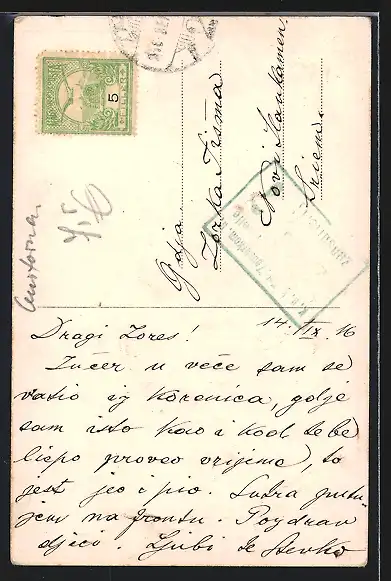 5
Gdja
Zorka Trišma
Novi Slankamen
Sriem
Dragi Zores!
14. IX. 16
Jučer u veće sam se
vratio iz Korenica, gdje
sam isto kao i kod tebe
liepo proveo vrijeme, to
jest jeo i pio. Sutra putu-
jem na frontu. Pozdrav
djeci. Ljubi te Stevko